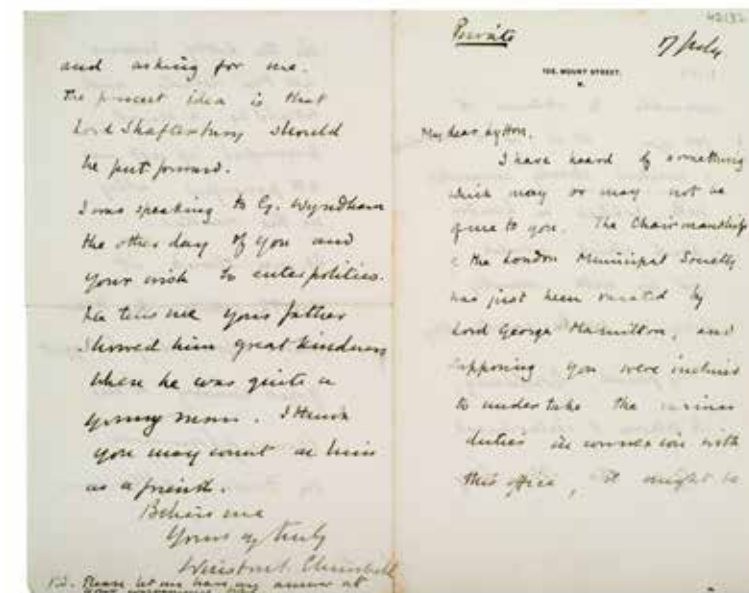 Private
17 July
105, MOUNT STREET,
W.
My dear Lytton,
I have heard of something
which may or may not be
of use to you. The Chairmanship
of the London Municipal Society
has just been vacated by
Lord George Hamilton, and
supposing you were inclined
to undertake the various
duties in connexion with
this office, it might be
and asking for me.
The present idea is that
Lord Shaftesbury should
be put forward.
I was speaking to G. Wyndham
the other day of you and
your wish to enter politics.
He tells me your father
showed him great kindness
when he was quite a
young man. I think
you may count on him
as a friend.
Believe me
Yours vy truly
Winston S. Churchill
P.S. Please let me have any answer at
your convenience